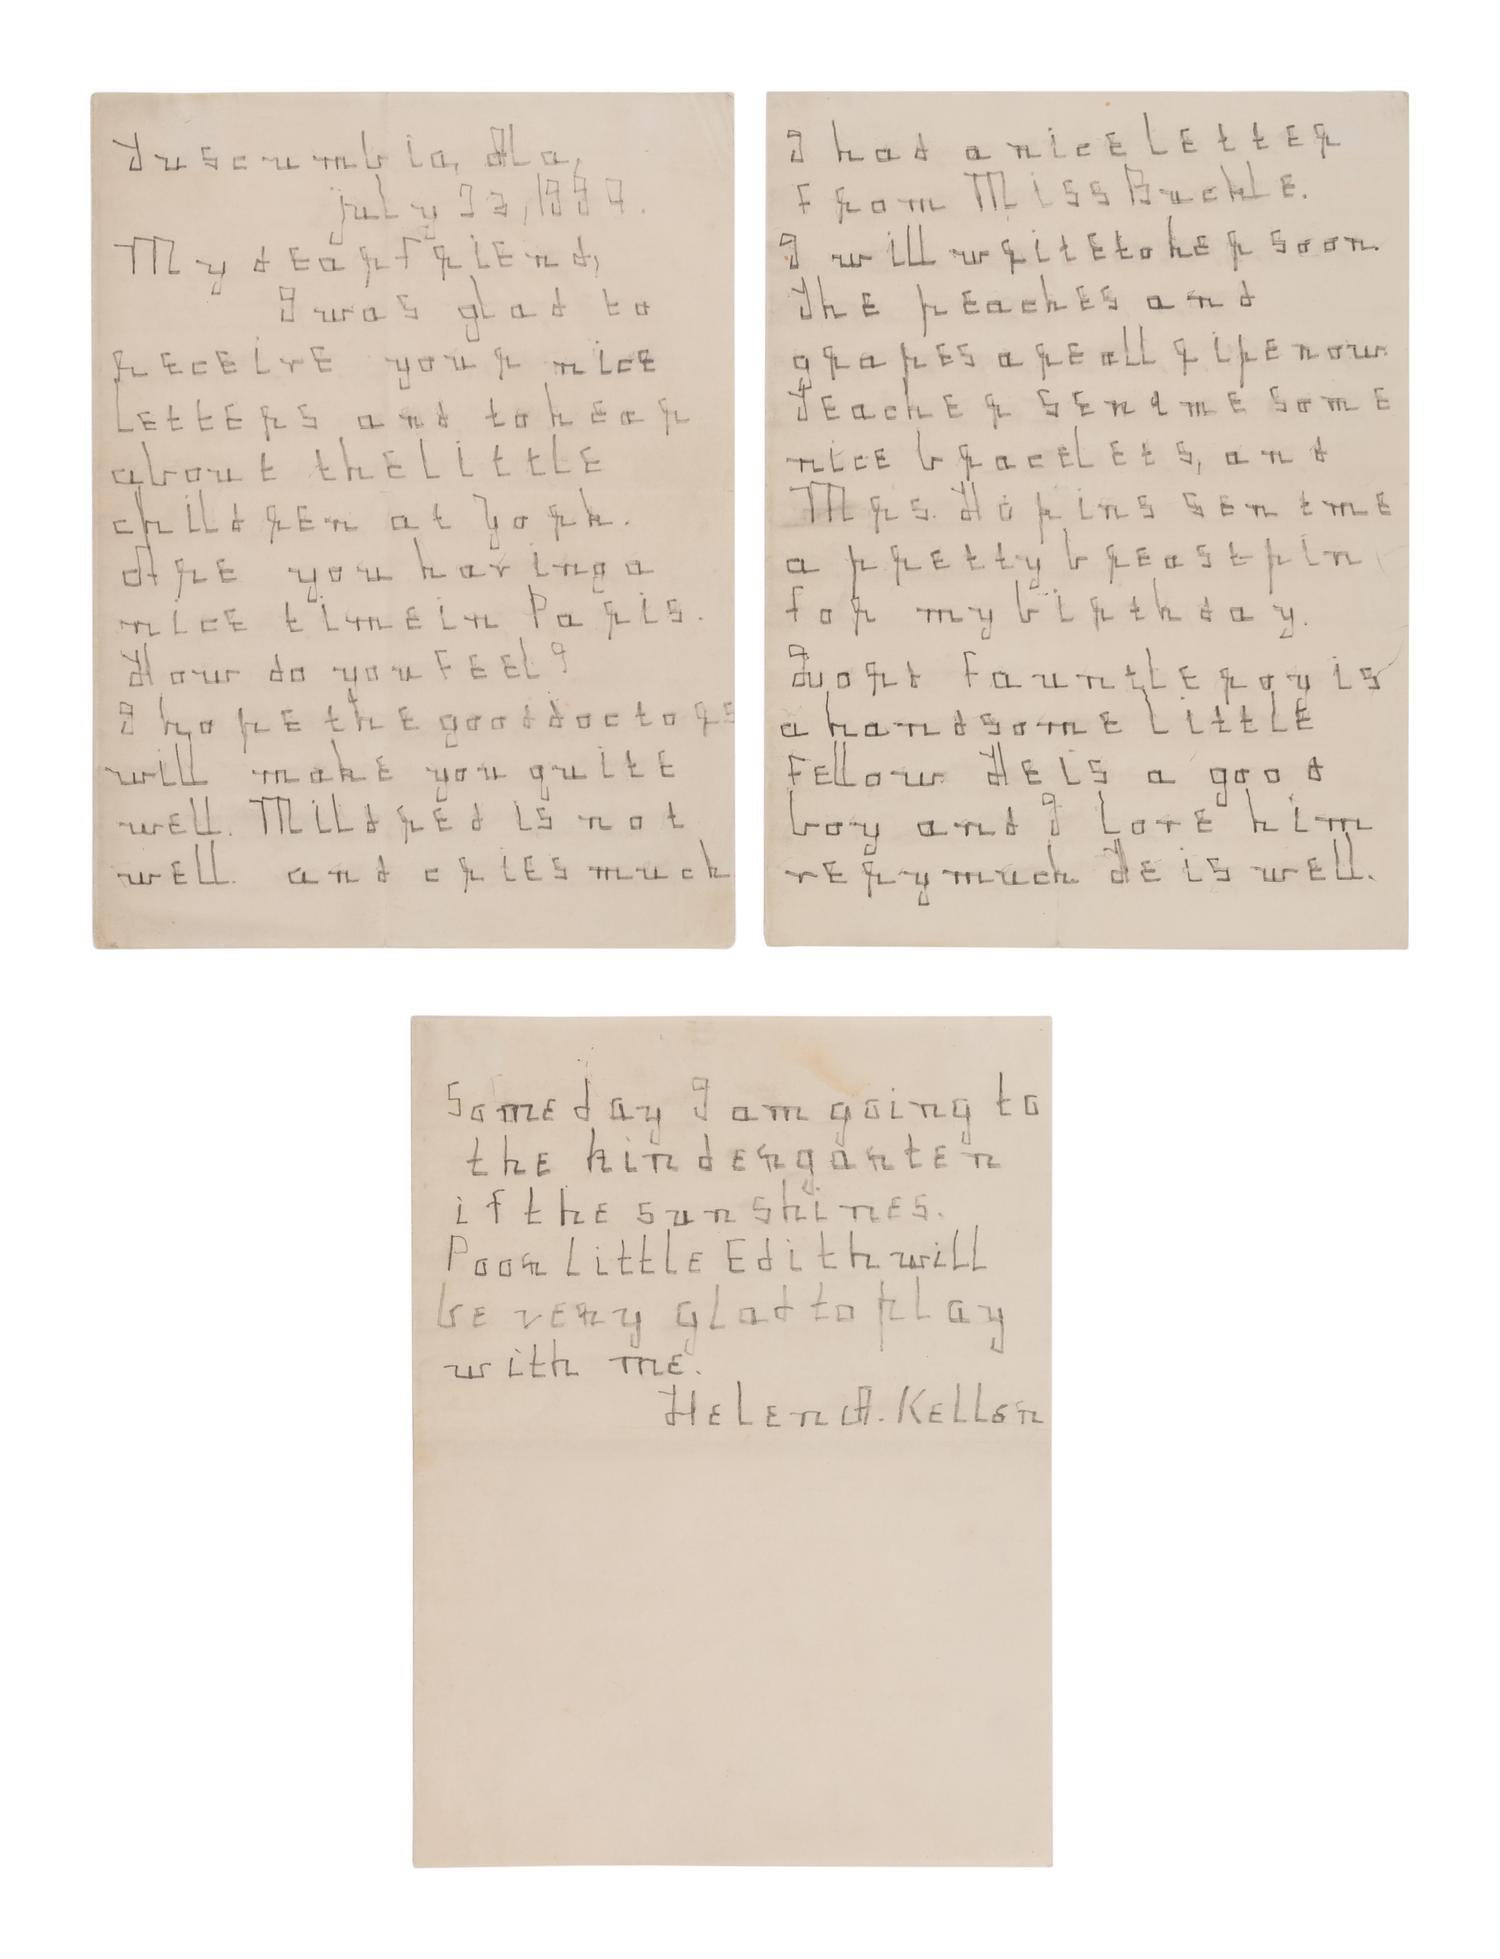 Tuscumbia, Ala,
july 23, 1889.
My dear friend,
I was glad to
receive your nice
letters and to hear
about the little
children at York.
Are you having a
nice time in Paris.
How do you feel?
I hope the good doctors
will make you quite
well. Mildred is not
well. and cries much
I had a nice letter
from Miss Buckle.
I will write to her soon.
The peaches and
grapes are all ripe now.
Teacher send me some
nice bracelets, and
Mrs. Hopins sent me
a pretty breast pin
for my birthday.
Lord Fauntleroy is
a handsome little
fellow. He is a good
boy and I love him
very much He is well.
Some day I am going to
the kindergarten
if the sun shines.
Poor little Edith will
be very glad to play
with me.
Helen A. Keller